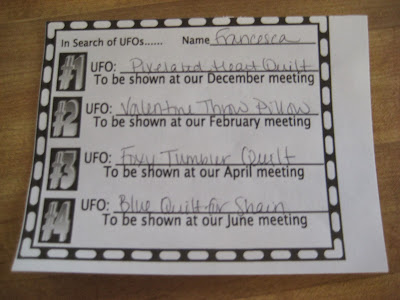 In Search of UFOs...... Name Francesca
#1 UFO: Pixelated Heart Quilt
To be shown at our December meeting
#2 UFO: Valentine Throw Pillow
To be shown at our February meeting
#3 UFO: Foxy Tumbler Quilt
To be shown at our April meeting
#4 UFO: Blue Quilt for Shain
To be shown at our June meeting